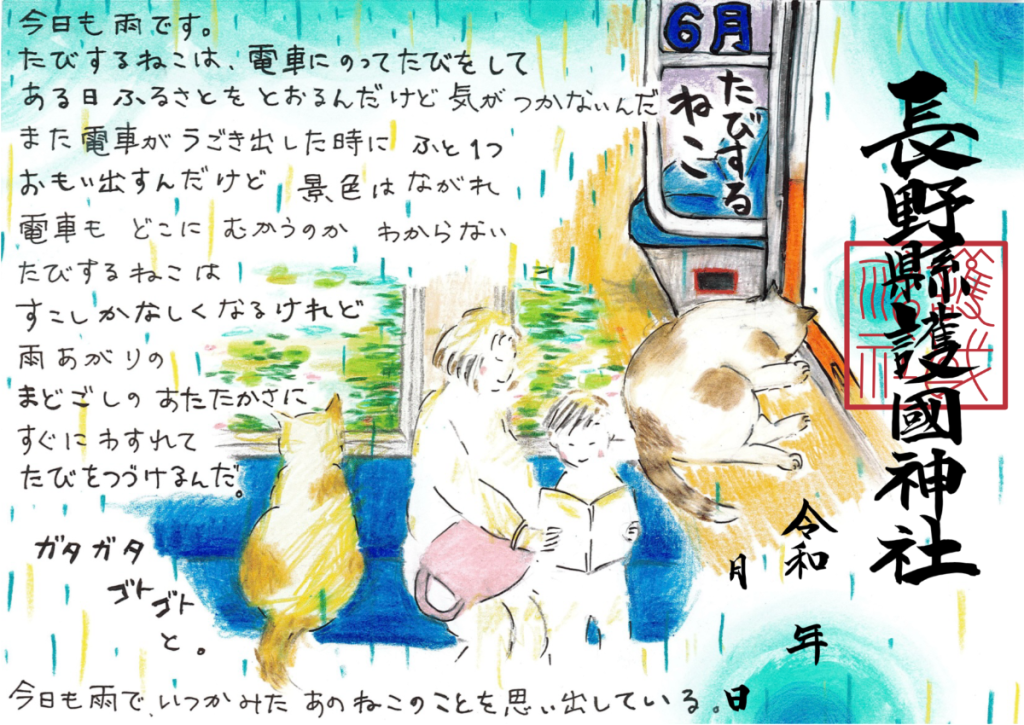 今日も雨です。
たびするねこは、電車にのってたびをして
ある日ふるさとをとおるんだけど気がつかないんだ
また電車がうごき出した時にふと1つ
おもい出すんだけど 景色はながれ
電車も どこに むかうのか わからない
たびするねこは
すこしかなしくなるけれど
雨あがりの
まどごしの あたたかさに
すぐにわすれて
たびをつづけるんだ。
ガタガタ
ゴトゴト
と。
今日も雨で、いつかみた あのねこのことを思い出している。
6月
たびする
ねこ
長野縣護國神社
令和 年
月 日